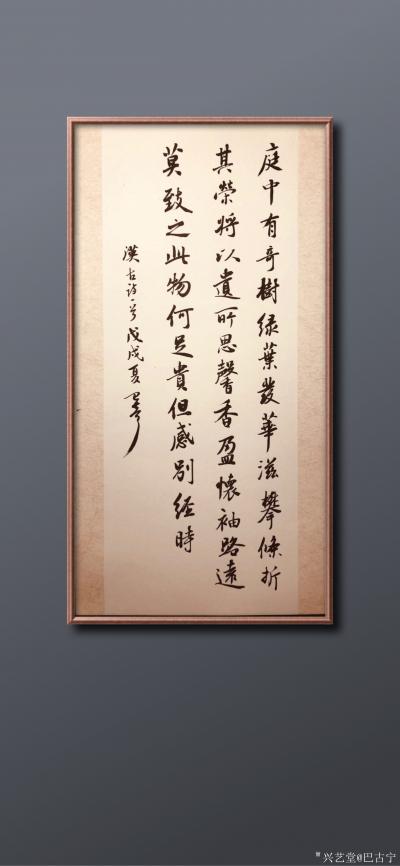 庭中有奇樹绿葉發華滋攀條折
其榮將以遺所思馨香盈懷袖路遠
莫致之此物何足貴但感别經時
漢古詩一首戊戌夏
兴艺堂@巴古宁